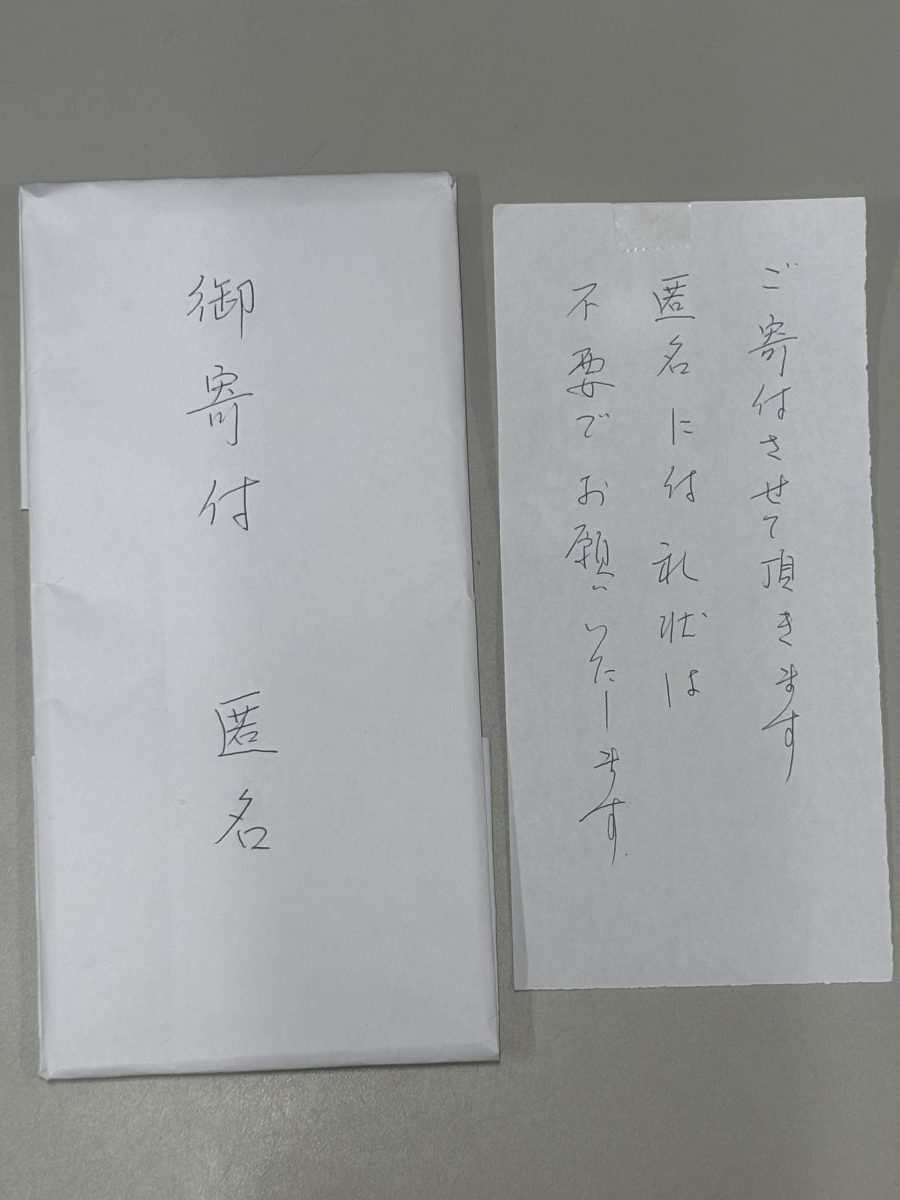 御寄付 匿名
ご寄付させて頂きます
匿名に付 礼状は
不要でお願いいたします